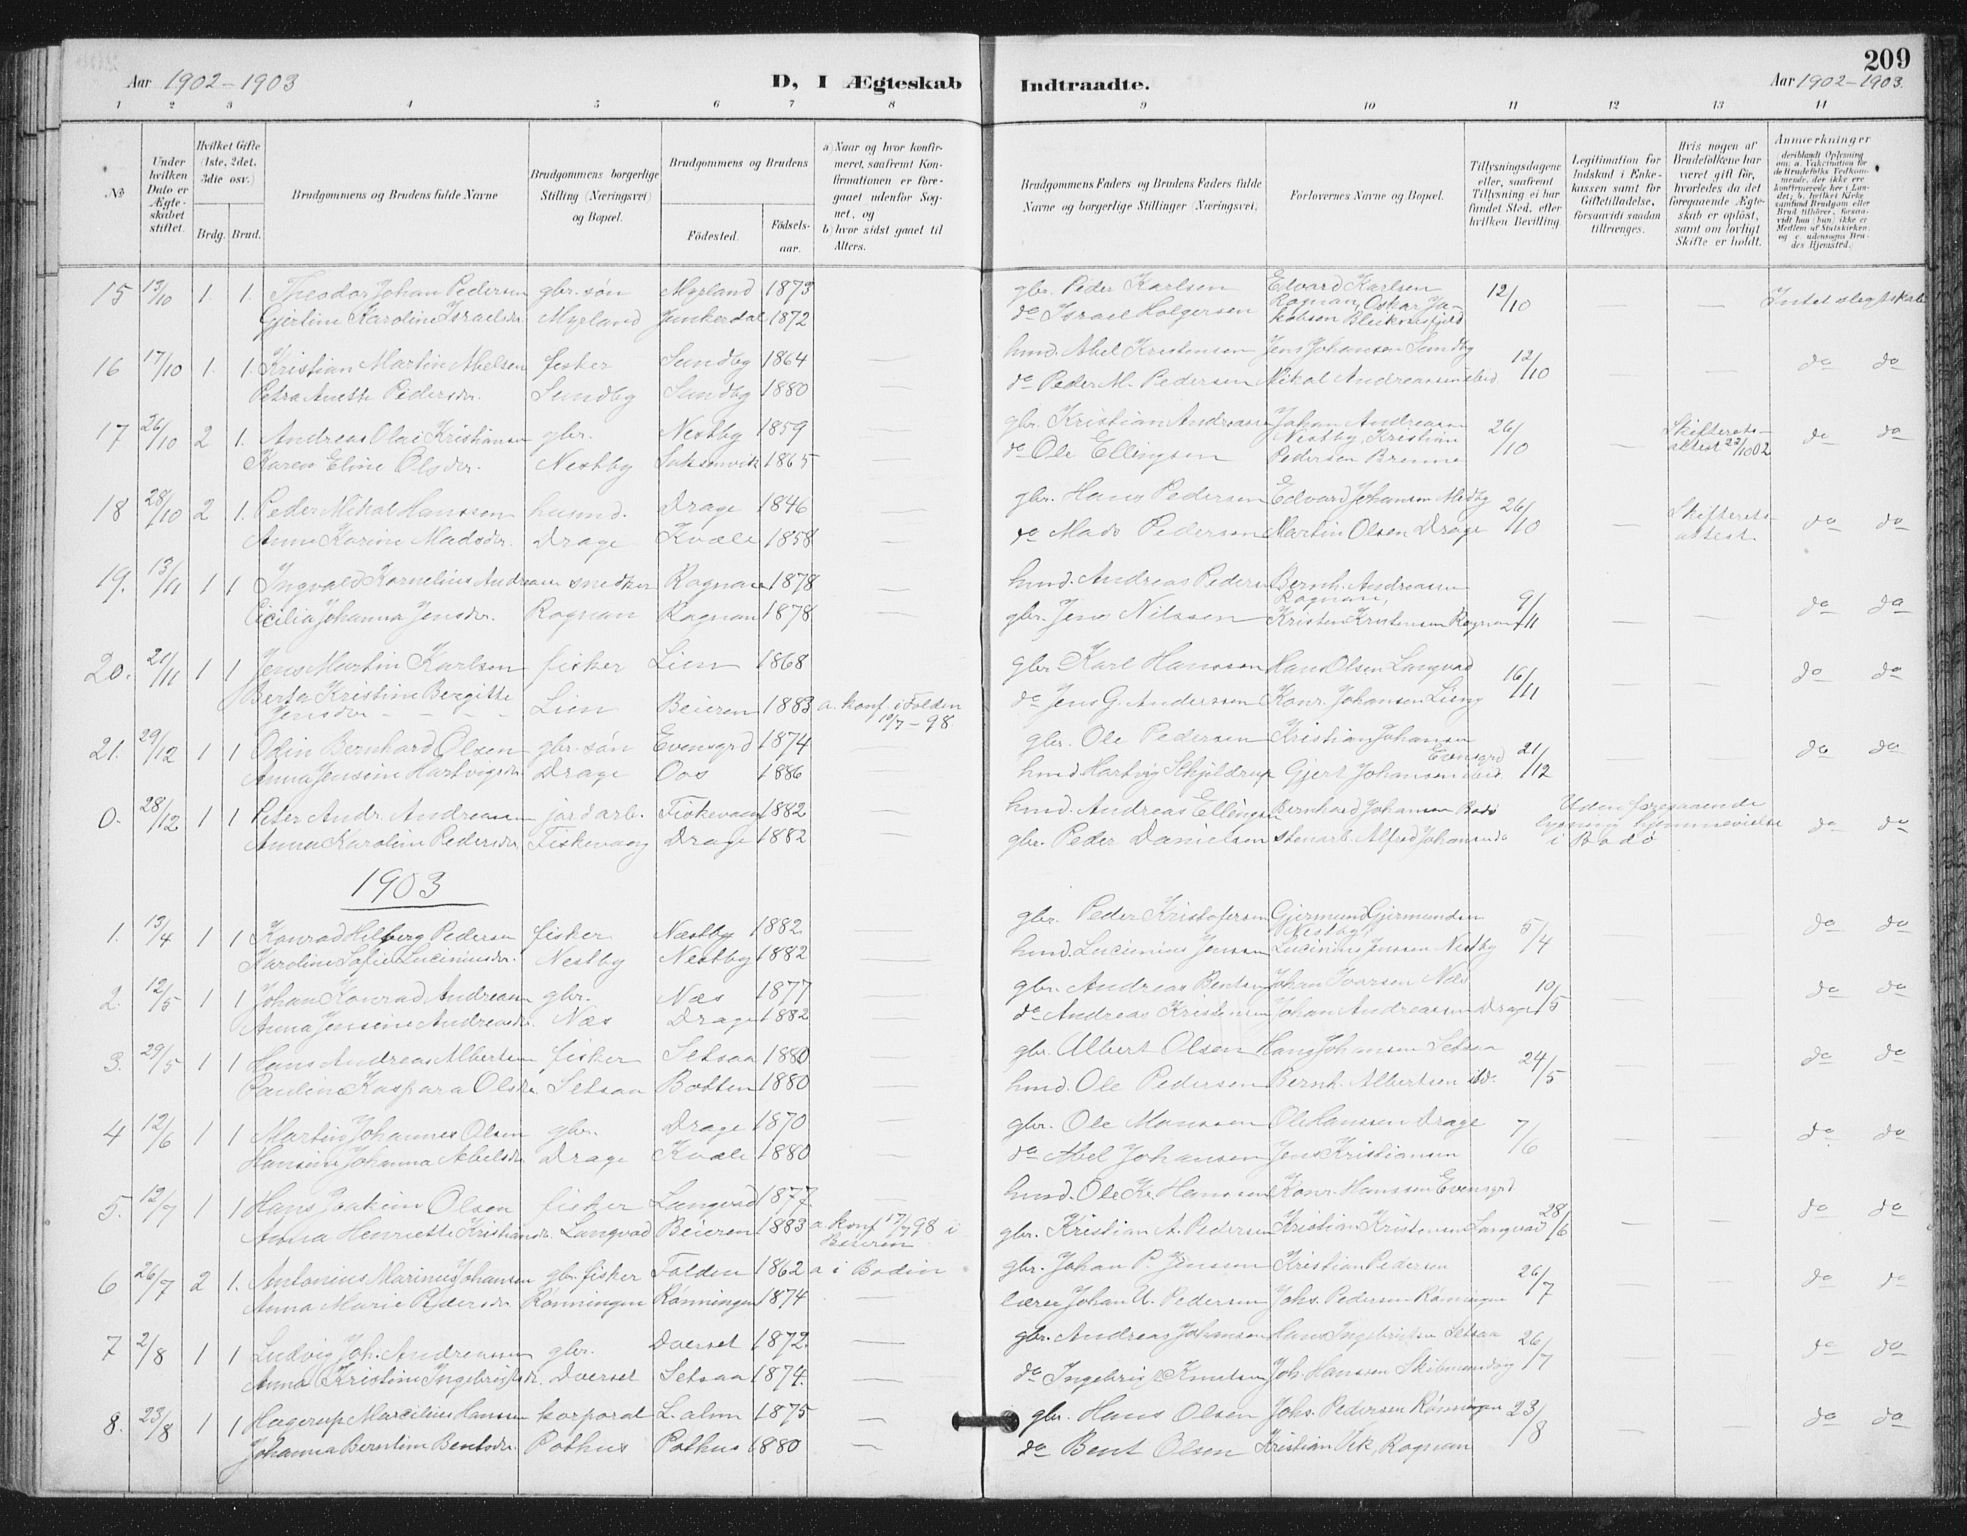 209
Aar 1902-1903
D, I Ægteskab Indtraadte.
Aar 1902-1903.
1 2 3 4 5 6 7 8 9 10 11 12 13 14
No
Under hvilken Dato er Ægteskabet stiftet.
Hvilket Gifte (1ste, 2det, 3die osv.)
Brdg. Brud.
Brudgommens og Brudens fulde Navne
Brudgommens borgerlige Stilling (Næringsvei) og Bopæl.
Brudgommens og Brudens
Fødested. Fødselsaar.
a) Naar og hvor konfirmeret, saafremt Konfirmationen er foregaaet udenfor Sognet, og
b) hvor sidst gaaet til Alters.
Brudgommens Faders og Brudens Faders fulde Navne og borgerlige Stillinger (Næringsvei).
Forlovernes Navne og Bopæl.
Tillysningsdagene eller, saafremt Tillysning ei har fundet Sted, efter hvilken Bevilling.
Legitimation for Indskud i Enkekassen samt for Giftetilladelse, forsaavidt saadan tiltrænges.
Hvis nogen af Brudefolkene har været gift før, hvorledes da det foregaaende Ægteskab er opløst, samt om lovligt Skifte er holdt.
Anmærkninger
15 13/10 1. 1. Theodor Johan Pedersen gbr. søn Myrland 1873 gbr. Peder Karlsen Edvard Karlsen 12/10 — — Intet slegtskab
Rognan, Oskar Ja-
Gjertine Karoline Israelsdr. Myrland Junkerdal 1872 do Israel Holgersen kobsen
16 17/10 1. 1. Kristian Martin Abelsen fisker Sundby 1864 — hmd. Abel Kristensen Jens Johansen Sundby 12/10 — — do do
Petra Anette Pedersdr. Sundby Sundby 1880 — do Peder M. Pedersen Nikal Andreassen
17 26/10 2 1. Andreas Olai Kristiansen gbr. Nestby 1859 — gbr. Kristian Andreassen Johan Andreassen 26/10 — Skifterets- do do
Nestby, Kristian attest 22/10 02
Karen Eline Olsdr. Nestby Saksenvik 1865 — do Ole Ellingsen Pedersen Brenne
18 28/10 2 1. Peder Mikal Hanssen husmd. Drage 1846 — gbr. Hans Pedersen Edvard Johansen Medby 26/10 — Skifterets- do do
Anne Karine Madsdr. Drage Kvæle 1858 — do Mads Pedersen Martin Olsen Drage attest
19. 13/11 1 1 Ingvald Kornelius Andreassen snedker Rognan 1878 — hmd. Andreas Pedersen Bernh. Andreassen 9/11 — — do do
Rognan,
Cicilia Johanna Jensdr. Rognan Rognan 1878 — gbr. Jens Nilssen Kristen Kristensen Rognan
20. 21/11 1 1 Jens Martin Karlsen fisker Lien 1868 — gbr Karl Hanssen Hans Olsen Langvad 16/11 — — do do
Berta Kristine Bergitte
Jensdr. Lien Beieren 1883 a. konf. i Folden do Jens G. Anderssen Konr. Johansen
10/7 - 98.
21. 29/12 1 1 Odin Bernhard Olsen gbr. søn Evensgrd 1874 — gbr. Ole Pedersen Kristian Johansen 21/12 — — do do
Evensgrd
Anna Jensine Hartvigsdr Drage Oos 1886 — hmd Hartvig Schjeldrup Gjert Johansen
0. 28/12 1 1 Peter Andr. Andreassen jordarb. Fiskevaag 1882 — hmd. Andreas Ellingsen Bernhard Johansen Bodø Uden foregaaende do do
lysning hjemmevielse
Anna Karoline Pedersdr. Fiskevaag Drage 1882 — gbr. Peder Danielsen stenarb. Alfred Johansen do i Bodø
1903
1. 13/4 1 1 Konrad Helberg Pedersen fisker Nestby 1882 — gbr. Peder Kristofersen Gjermund Gjermundsen 5/4 — — do do
Nestby
Karoline Sofie Lucinusdr. Nestby Nestby 1882 — hmd. Lucinius Jenssen Lucinius Jenssen Nestby
2. 12/5 1 1 Johan Konrad Andreassen gbr. Næs 1877 — gbr. Andreas Bentsen Johan Ivarsen Næs 10/5 — — do do
Anna Jensine Andreasdr. Næs Drage 1882 — do Andreas Kristensen Johan Andreassen Drage
3. 29/5 1 1 Hans Andreas Albertsen fisker Setsaa 1880 — gbr. Albert Olsen Hans Johansen Setsaa 24/5 — — do do
Pauline Kaspara Olsdr. Setsaa Botten 1880 — hmd. Ole Pedersen Bernh. Albertsen
4 12/6 1 1 Martin Johannes Olsen gbr. Drage 1870 — gbr. Ole Monssen Ole Hanssen Drage 7/6 — — do do
Hansine Johanna Abelsdr Drage Kvæle 1880 — do Abel Johansen Jens Kristiansen
5. 12/7 1 1 Hans Joakim Olsen fisker Langvad 1877. — hmd. Ole Kr. Hanssen Konr. Hanssen Evensgrd 28/6 — — do do
Anna Henriette Kristiansdr. Langvad Beieren 1883 a. konf 17/7 98 i Beieren gbr. Kristian A. Pedersen Kristian Kristensen Langvad
6 26/7 2 1. Antonius Marinus Johansen gbr. fisker Folden 1862 a i Bodin gbr. Johan P. Jenssen Kristian Pedersen 26/7 — — do do
Anna Marie Pedersdr Rønningen Rønningen 1874 — lærer Johan U. Pedersen Johs. Pedersen Rønningen
7 2/8 1 1 Ludvig Joh. Andreassen gbr. Dverset 1872. — gbr. Andreas Johansen Hans Ingebrigtsen Setsaa 26/7 — — do do
Anna Kristine Ingebrigtsdr. Dverset Setsaa 1874. — do Ingebrigt Knutsen Joh. Hanssen
8. 23/8 1 1 Hagerup Marcelius Hanssen korporal 1875 — gbr. Hans Olsen Johs. Pedersen Rønningen 23/8 — — do do
Johanna Berntine Bentsdr. Pothus Pothus 1880 — do Bent Olsen Kristian Vik, Rognan